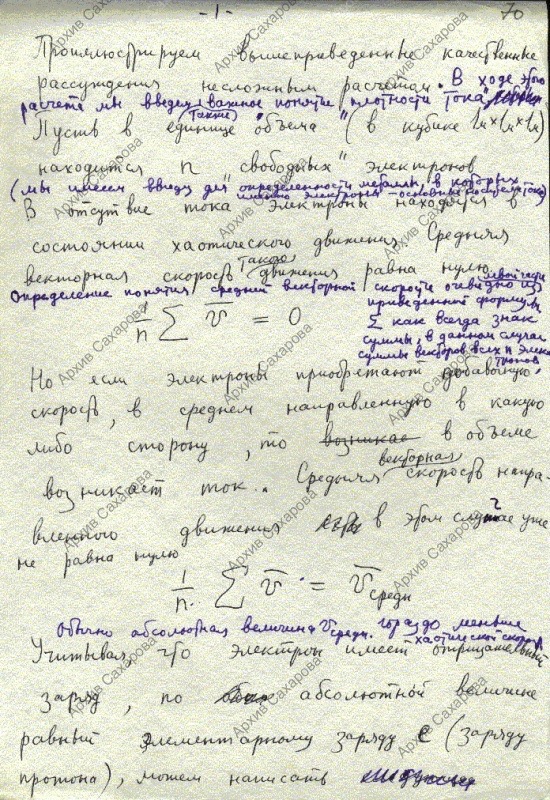 - 1 -
70
Проиллюстрируем вышеприведенные качественные
рассуждения несложным расчетом. В ходе этого
расчета мы введем важное понятие "плотности тока"
(также)
Пусть в единице объема (в кубике 1м×1м×1м)
находится n "свободных" электронов
(мы имеем ввиду для определенности металлы, в которых
именно электроны - основные носители тока)
В отсутствие тока электроны находятся в
состоянии хаотического движения. Средняя
векторная скорость такого движения равна нулю
Определение понятия средней векторной скорости очевидно из левой части
приведенной формулы
1/n ∑ v̅ = 0
∑ как всегда знак
суммы, в данном случае
суммы векторов всех n элек-
тронов.
Но если электроны приобретают добавочную
скорость, в среднем направленную в какую
либо сторону, то в объеме
возникает ток. Средняя векторная скорость напра-
вленного движения в этом случае уже
не равна нулю
1/n. ∑ v̅ = v̅средн
Обычно абсолютная величина vсредн. гораздо меньше
хаотической скорости
Учитывая, что электрон имеет отрицательный
заряд, по абсолютной величине
равный элементарному заряду e (заряду
протона), можем написать
Архив Сахарова